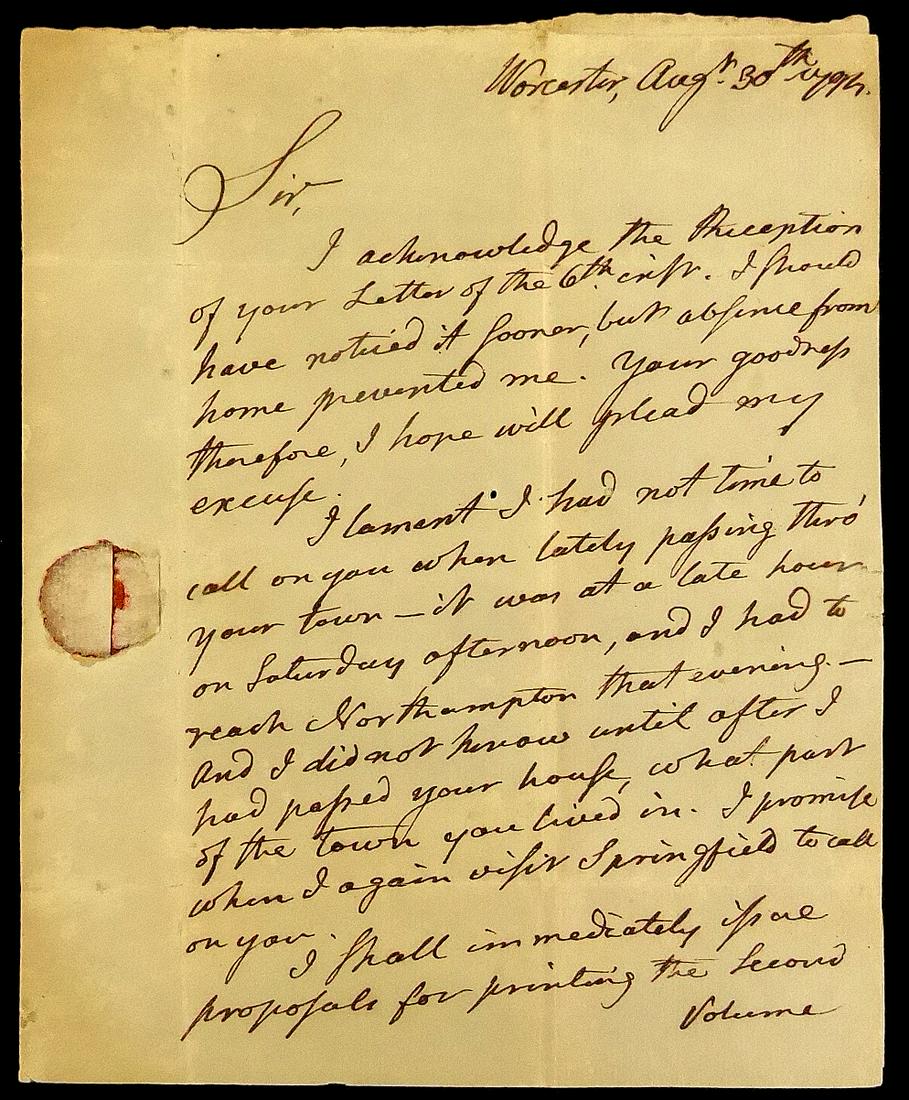 Worcester, Augt. 30th 1792.
Sir,
I acknowledge the Reception
of your Letter of the 6th. inst. I should
have noticed it sooner, but absence from
home prevented me. Your goodness
therefore, I hope will plead my
excuse.
I lament I had not time to
call on you when lately passing thro'
your town — it was at a late hour
on Saturday afternoon, and I had to
reach Northampton that evening —
And I did not know until after I
had passed your house, what part
of the town you lived in. I promise
when I again visit Springfield to call
on you.
I shall immediately issue
proposals for printing the Second
Volume